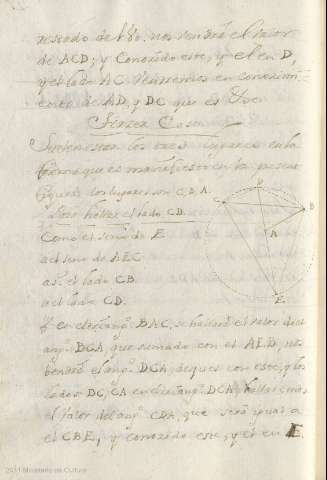 restado de 180. nos vendrá el valor
de ACD; y conozido este, y el en D,
y el lado AC vendremos en conozim
iento de AD, y DC que es
Tirzer Caso
los tres lugares en la
forma que es manifiesto en la presente
figura los lugares son C, D, A.
Para hallar el lado CD.
Como el seno de E
al seno de AEC
asi el lado CB.
al lado CD.
Y en el triang.º BAC, se hallará el valor del
ang.º BCA que sumado con el AED, nos
vendrá el ang.º DCA, despues con este, y los
lados DC, CA en el triang.º DCA,
el valor del ang.º CDA, que será igual a
el CBE, y conozido este, y el en E.
C
B
A
E
2011 Ministerio de Cultura